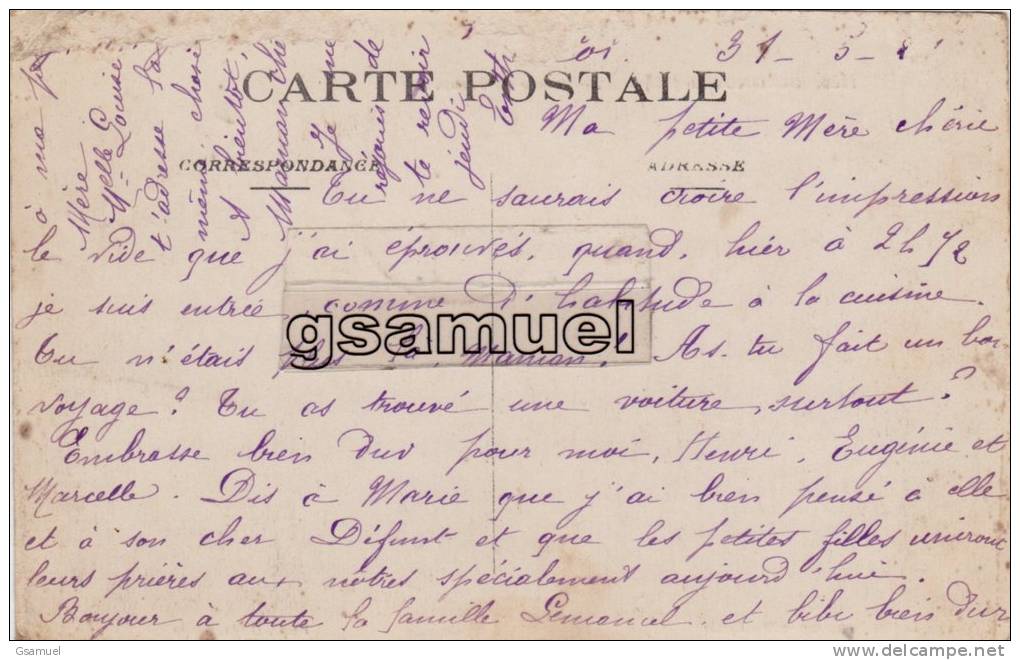 31-5-
CARTE POSTALE
CORRESPONDANCE ADRESSE
Ma petite Mère chérie
Tu ne saurais croire l'impression
le vide que j'ai éprouvés, quand, hier à 2h 1/2
je suis entrée, comme d'habitude à la cuisine.
Tu n'étais plus là, Maman! As-tu fait un bon
voyage? Tu as trouvé une voiture surtout?
Embrasse bien dur pour moi, Henri, Eugénie et
Marcelle. Dis à Marie que j'ai bien pensé à elle
et à son cher Défunt et que les petites filles uniront
leurs prières aux nôtres spécialement aujourd'hui.
Bonjour à toute la famille et bibi bien dur
à ma
Mère
Melle Louise
t'adresse la
même chose
A bientôt
Maman
je me
réjouis de
te revoir
jeudi
gsamuel
GSamuel
www.delcampe.net